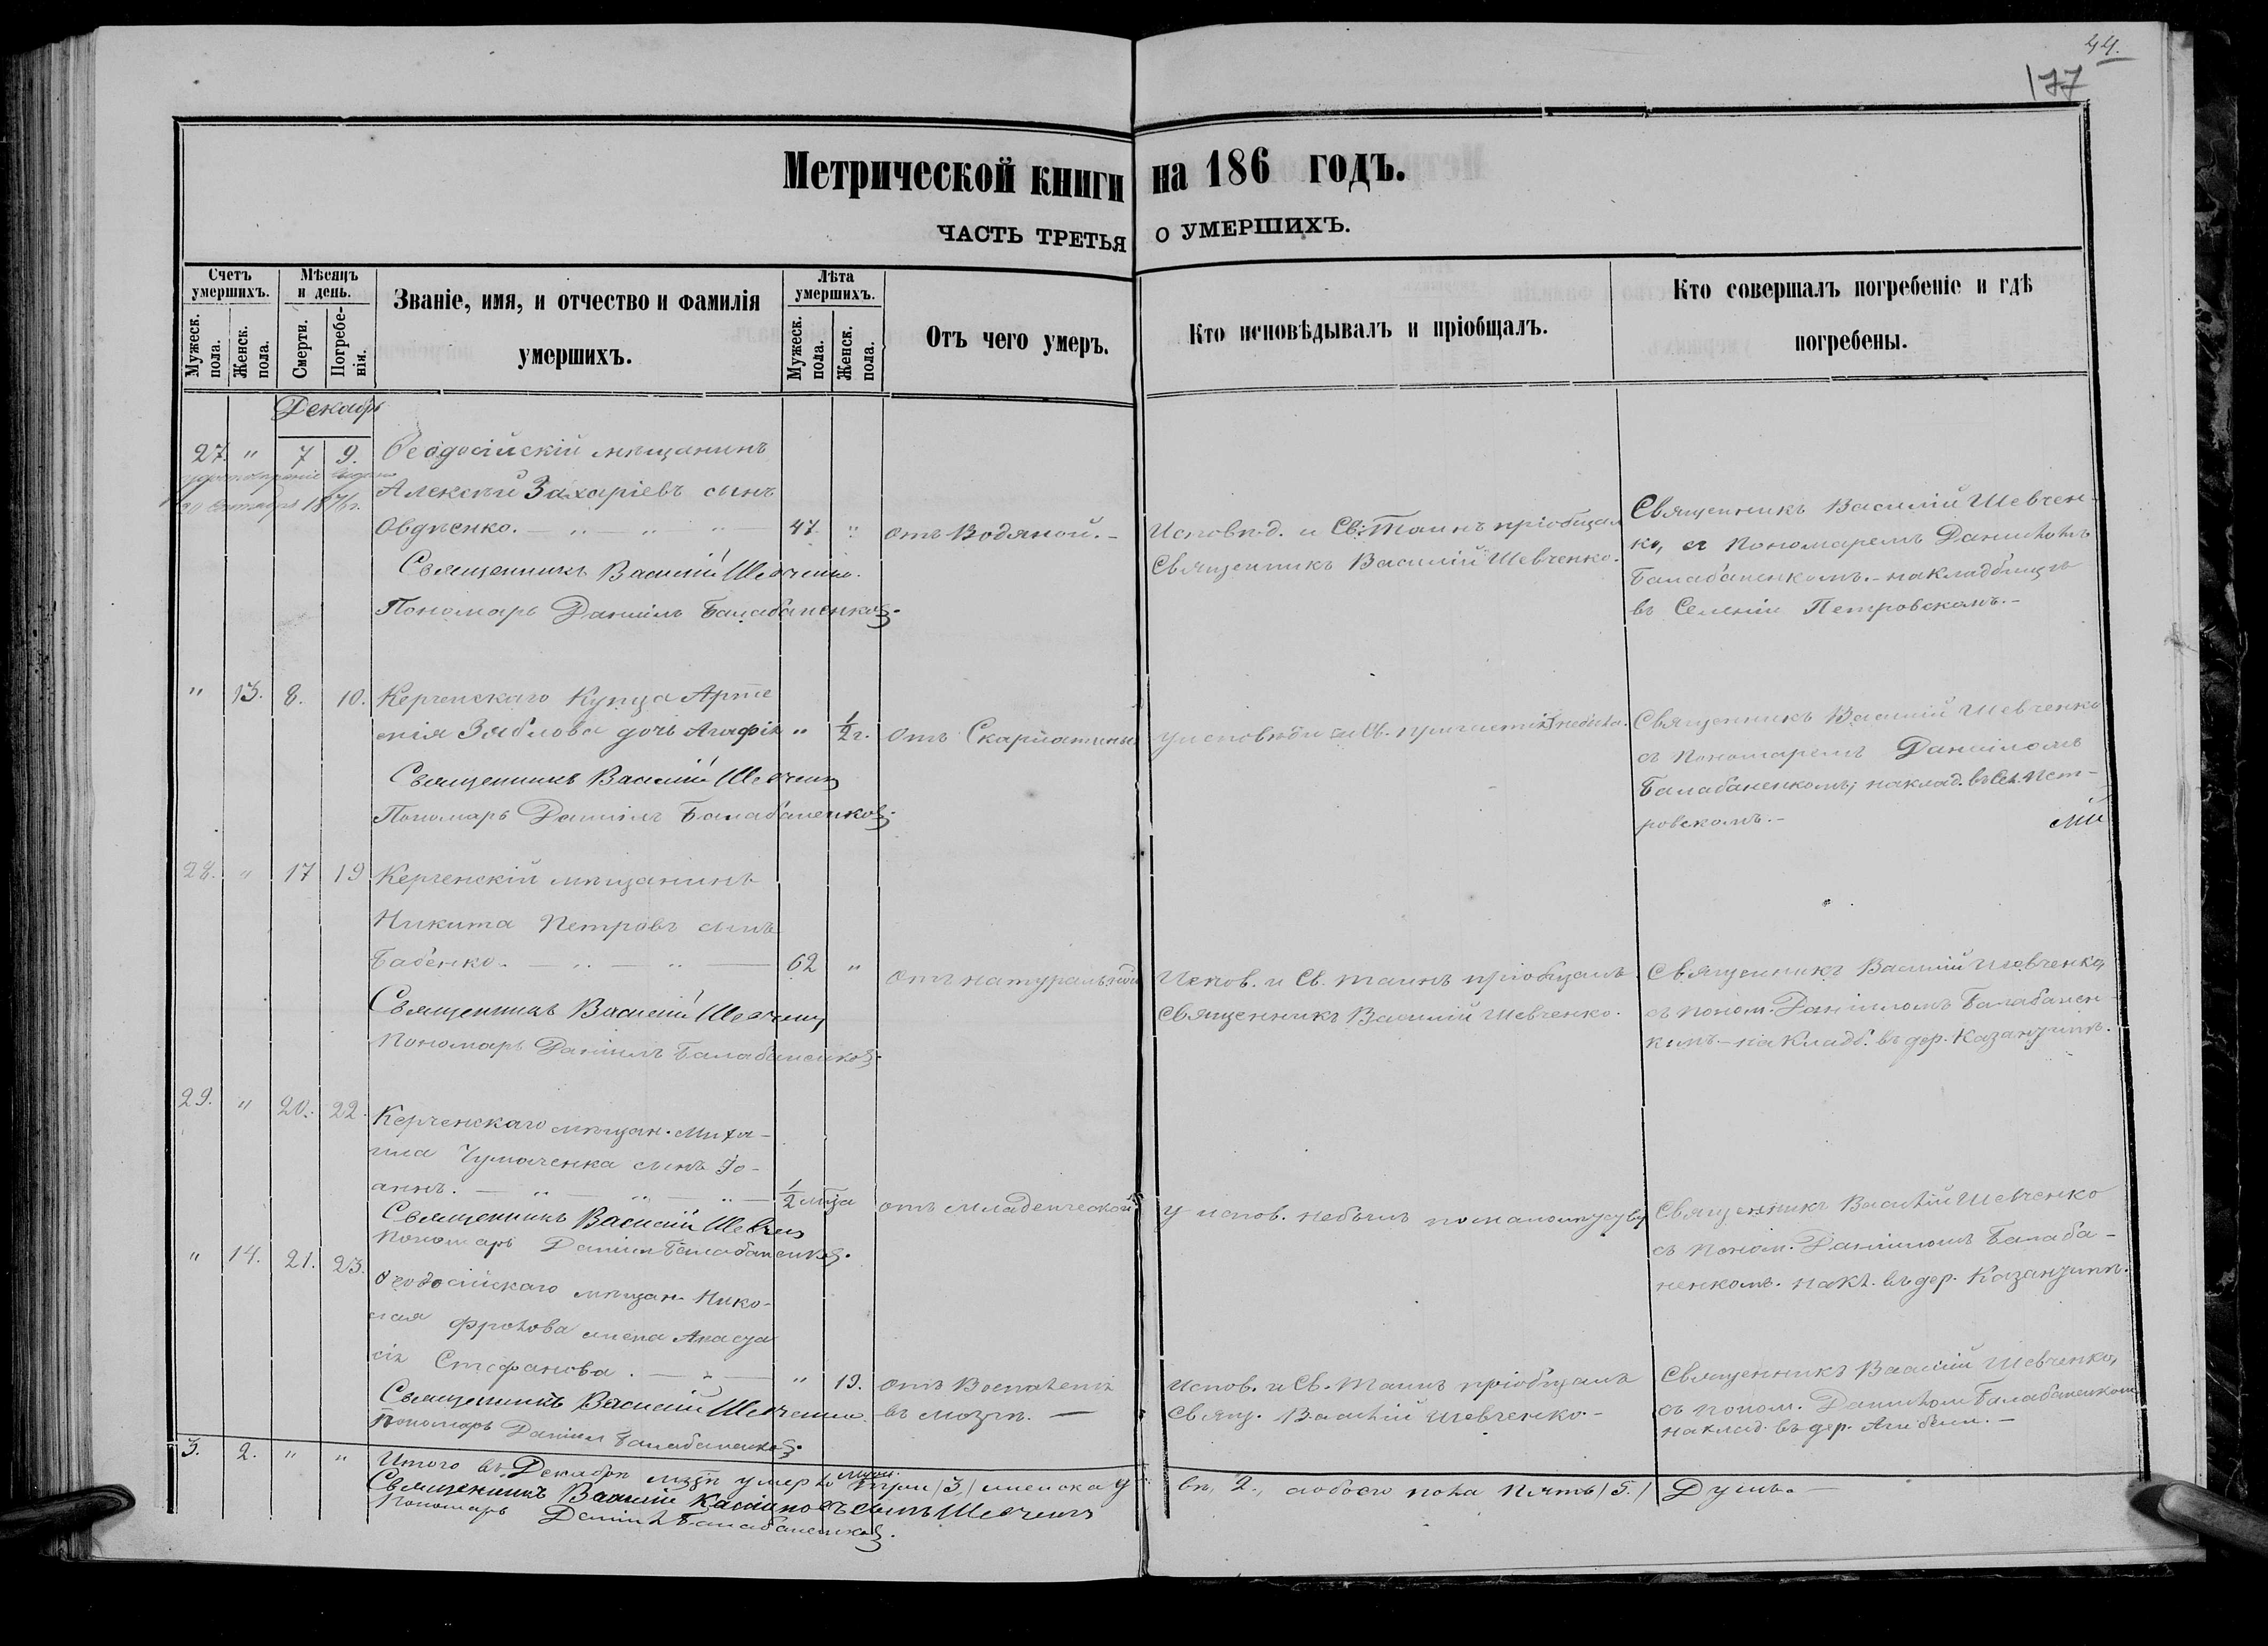 44.
177
Метрической книги на 186 годъ.
ЧАСТЬ ТРЕТЬЯ О УМЕРШИХЪ.
Счетъ умершихъ.
Мужеск. пола.
Женск. пола.
Мѣсяцъ и день.
Смерти.
Погребе-нія.
Званіе, имя, и отчество и фамилія
умершихъ.
Лѣта умершихъ.
Мужеск. пола.
Женск. пола.
Отъ чего умеръ.
Кто исповѣдывалъ и пріобщалъ.
Кто совершалъ погребеніе и гдѣ
погребены.
Декабрь
27. " 7 9. Ѳеодосійскій мѣщанинъ
Алексѣй Захаріевъ сынъ
Овдѣенко. 47. "
отъ Водяной.
Исповѣд. и Св: Таинъ пріобщал
Священникъ Василій Шевченко.
Священникъ Василій Шевчен-
ко, съ Пономаремъ Даниломъ
Балабаненкомъ.- на кладбищѣ
въ Селеніи Петровскомъ.-
Священникъ Василій Шевченко.
Пономарь Даніилъ Балабаненко
" 13. 8. 10. Керченскаго Купца Арте
мія Зяблова дочь Агафія " 1/2 г.
отъ Скарлатины
у исповѣди и Св. причастія небыла.
Священникъ Василій Шевченко
съ Пономаремъ Даниломъ
Балабаненкомъ; на клад. въ Сел. Пет-
ровскомъ.-
Священникъ Василій Шевченко
Пономарь Даніилъ Балабаненко
28. " 17 19 Керченскій мѣщанинъ
Никита Петровъ сынъ
Бабенко. 62 "
отъ натуральной
Испов. и Св. таинъ пріобщалъ
Священникъ Василій Шевченко.
Священникъ Василій Шевченко,
съ поном. Даниломъ Балабанен-
комъ - на кладб. въ дер. Казантипѣ.
Священникъ Василій Шевченко
Пономарь Даніилъ Балабаненко
29. " 20. 22. Керченскаго мѣщан. Миха-
ила Чумаченка сынъ Іо-
аннъ. 1/2 мца
отъ младенческой
у испов. небылъ по малолѣтству
Священникъ Василій Шевченко
съ поном. Даниломъ Балаба-
ненкомъ. на кл. въ дер. Казантипѣ.
Священникъ Василій Шевченко
Пономарь Даніилъ Балабаненко.
" 14. 21. 23. Ѳеодосійскаго мѣщан. Нико-
лая Фролова жена Анаста
сія Стефанова. " 19.
отъ Воспаленія
въ мозгѣ.
Испов. и Св. Таинъ пріобщалъ
Свящ. Василій Шевченко.-
Священникъ Василій Шевченко,
съ поном. Даниломъ Балабаненком
на клад. въ дер. -
Священникъ Василій Шевченко.
Пономарь Даніилъ Балабаненко.
3. 2. " " Итого въ Декабрѣ мцѣ умерло муж. три /3/ женска
2., обоего пола пять /5./ Душъ.
Священникъ Василій сынъ Шевченко
Пономарь Даніилъ Балабаненко.